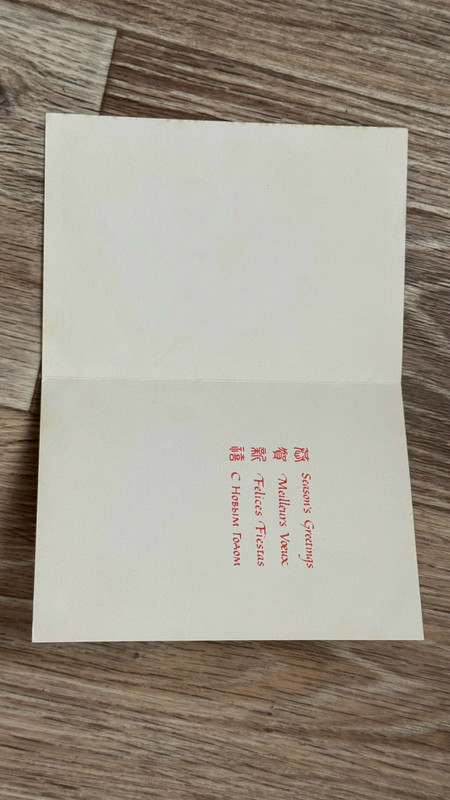 恭 Season's Greetings
賀 Meilleurs Vœux
新 Felices Fiestas
禧 С Новым Годом